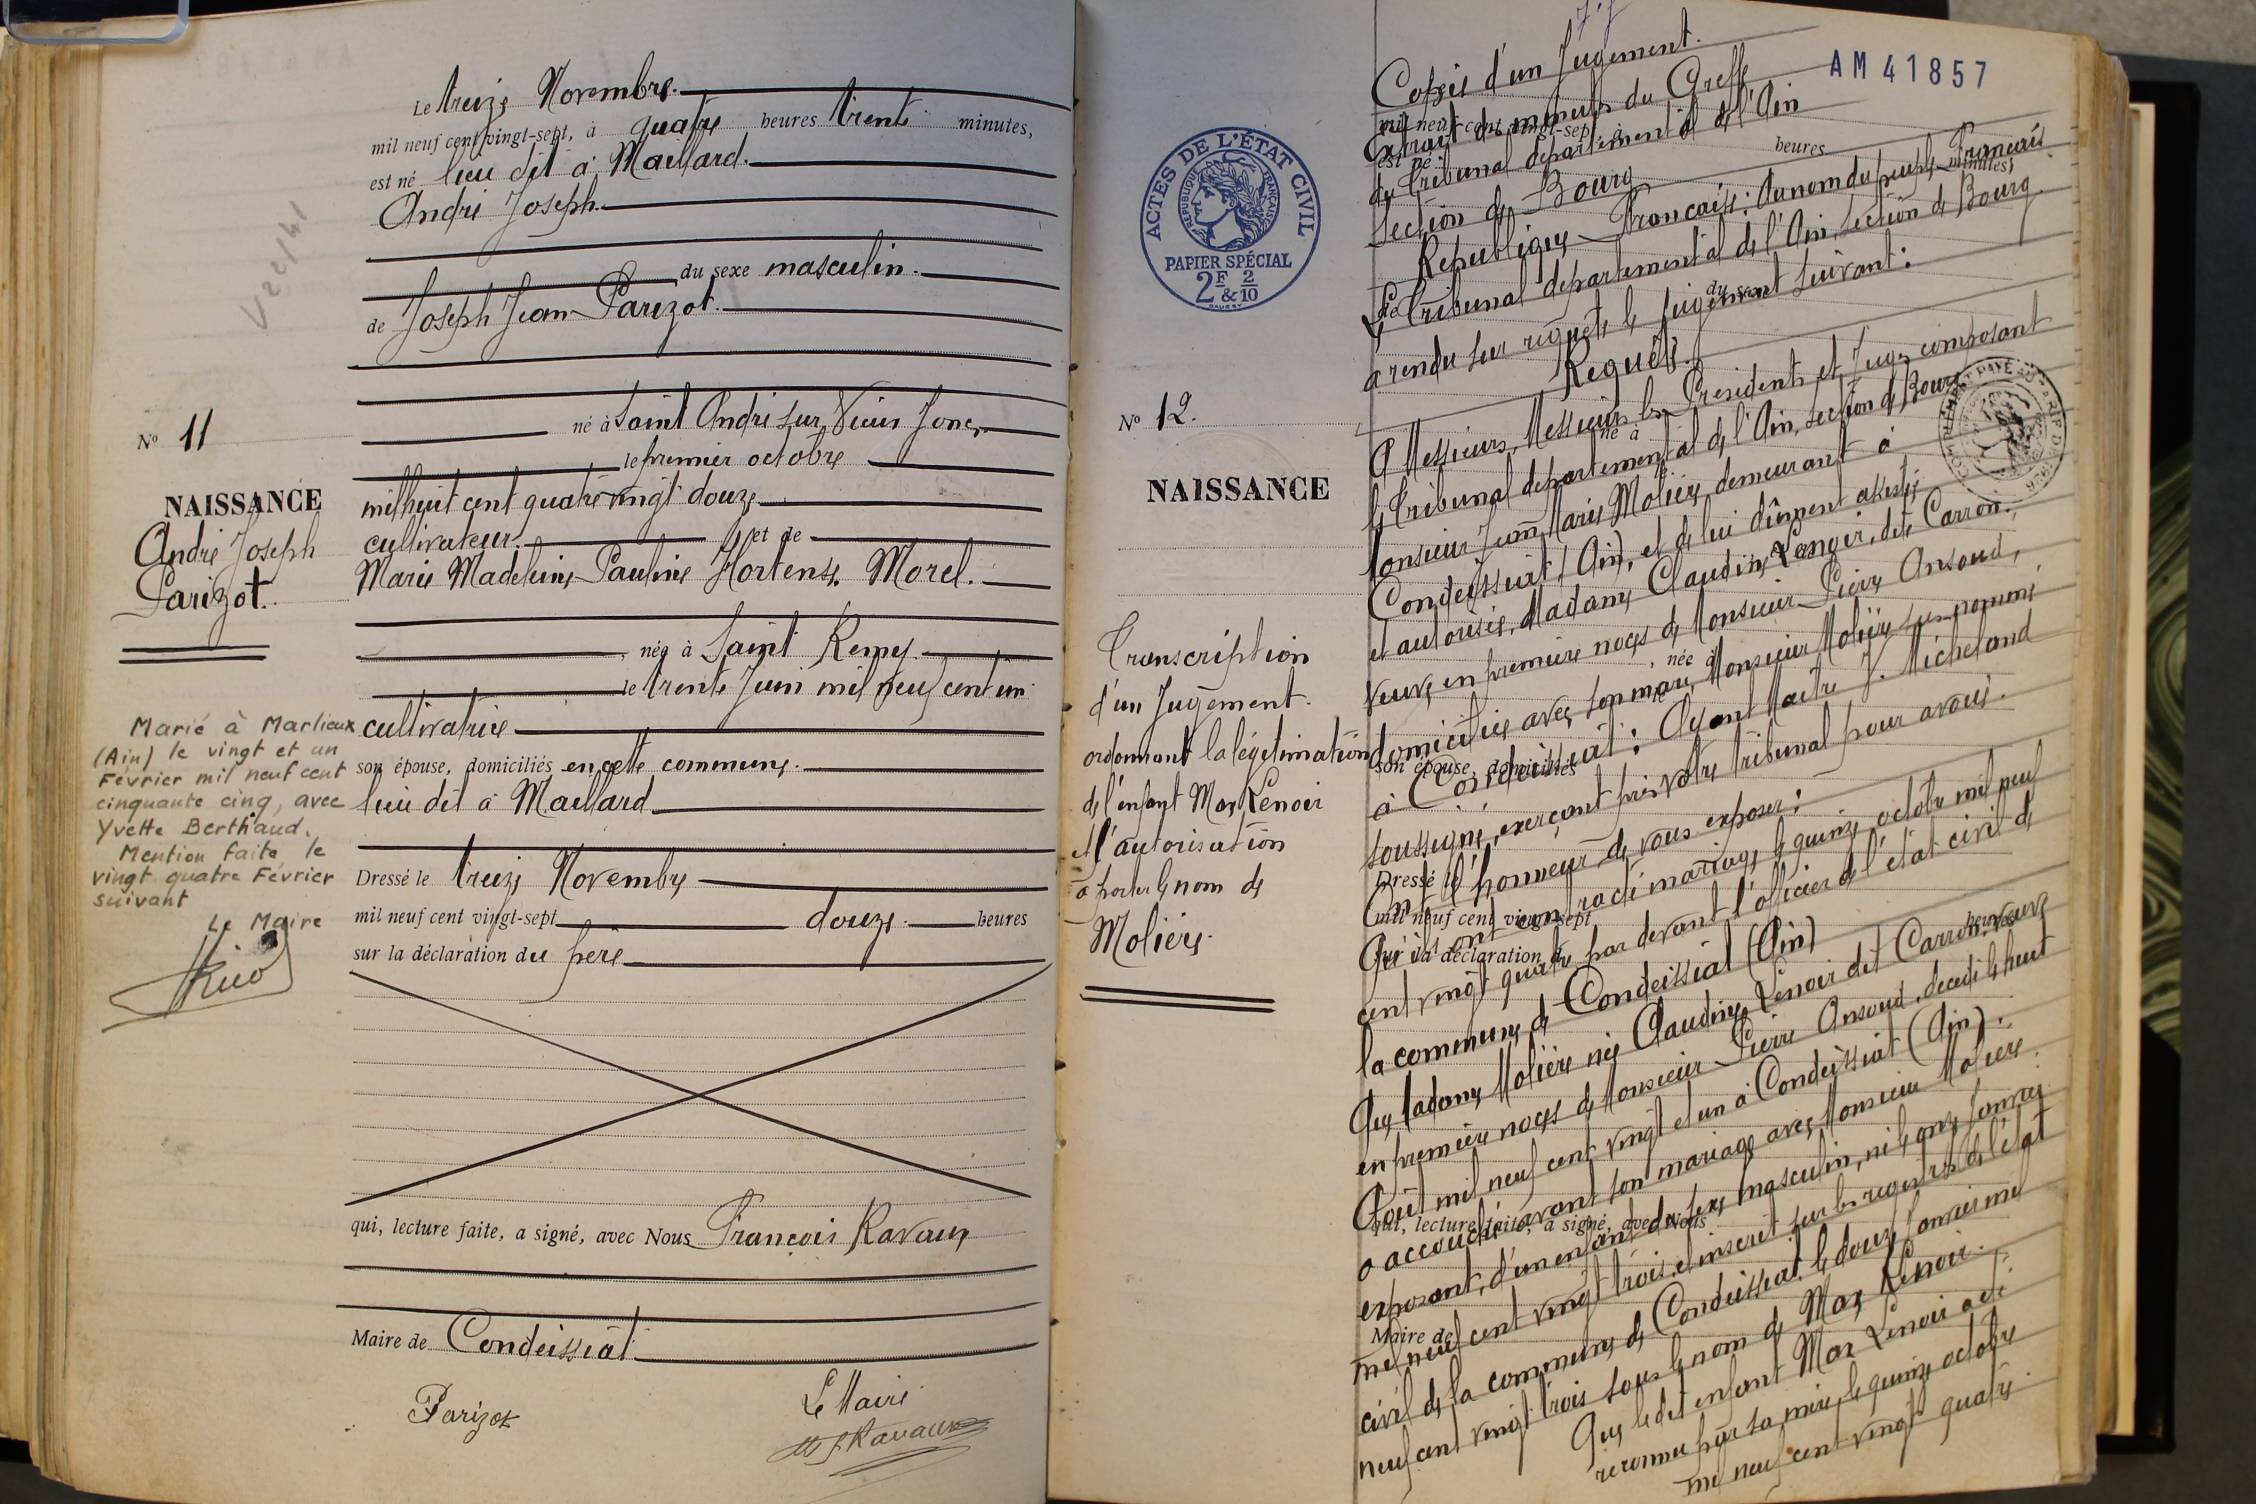 Le treize Novembre.
mil neuf cent vingt-sept, à quatre heures trente minutes,
est né lieu dit à Maillard.
André Joseph
du sexe masculin.
de Joseph Jean Parizot.
né à Saint André sur Vieux Jonc,
le premier octobre
mil huit cent quatre vingt douze
cultivateur et de
Marie Madeleine Pauline Hortense Morel.
née à Saint Remy.
le trente Juin mil neuf cent un
cultivatrice
son épouse, domiciliés en cette commune.
lieu dit à Maillard
Dressé le treize Novembre
mil neuf cent vingt-sept douze heures
sur la déclaration du père
qui, lecture faite, a signé, avec Nous François Ravaux
Maire de Condeissiat
Parizot
Le Maire
Ravaux
No 11
NAISSANCE
André Joseph
Parizot.
Marié à Marlieux
(Ain) le vingt et un
Février mil neuf cent
cinquante cinq, avec
Yvette Berthaud.
Mention faite le
vingt quatre Février
suivant
Le Maire
ACTES DE L'ÉTAT CIVIL
RÉPUBLIQUE FRANÇAISE
PAPIER SPÉCIAL
2F & 2/10
No 12.
NAISSANCE
Transcription
d'un Jugement.
ordonnant la légitimation
de l'enfant Max Lenoir
et l'autorisation
à porter le nom de
Molière.
AM41857
Copie d'un Jugement.
Extrait des minutes du Greffe
mil neuf cent vingt-sept, à heures minutes,
du Tribunal départemental de l'Ain
est né
section de Bourg
République Française: Au nom du peuple Français
Le Tribunal départemental de l'Ain, section de Bourg.
du sexe
a rendu sur requête le jugement suivant:
Requête.
A Messieurs, Messieurs les Présidents et Juges composant
né à
le Tribunal départemental de l'Ain, section de Bourg
Monsieur Jean Marie Molière, demeurant à
Condeissiat (Ain), et de lui dûment assistée
et autorisée, Madame Claudine Lenoir, dite Carron.,
veuve en premières noces de Monsieur Pierre Ansoud,
, née à
domiciliée avec son mari, Monsieur Molière sus nommé
à Condeissiat: Ayant Maître J. Micheland
son épouse, domiciliés
soussigné, exerçant près votre tribunal pour avoué.
Ont l'honneur de vous exposer:
Dressé le
Qu'ils ont contracté mariage, le quinze octobre mil neuf
mil neuf cent vingt-sept heures
cent vingt quatre par devant l'officier de l'état civil de
sur la déclaration d
la commune de Condeissiat (Ain)
Que Madame Molière née Claudine Lenoir dit Carron, veuve
en premières noces de Monsieur Pierre Ansoud, décédé le huit
Août mil neuf cent vingt et un à Condeissiat (Ain).
a accouché avant son mariage avec Monsieur Molière
qui, lecture faite, a signé, avec Nous
exposant, d'un enfant du sexe masculin, né le onze Janvier
mil neuf cent vingt trois et inscrit sur les registres de l'état
Maire de
civil de la commune de Condeissiat le douze Janvier mil
neuf cent vingt trois sous le nom de Max Lenoir.
Que le dit enfant Max Lenoir a été
reconnu par sa mère le quinze octobre
mil neuf cent vingt quatre.